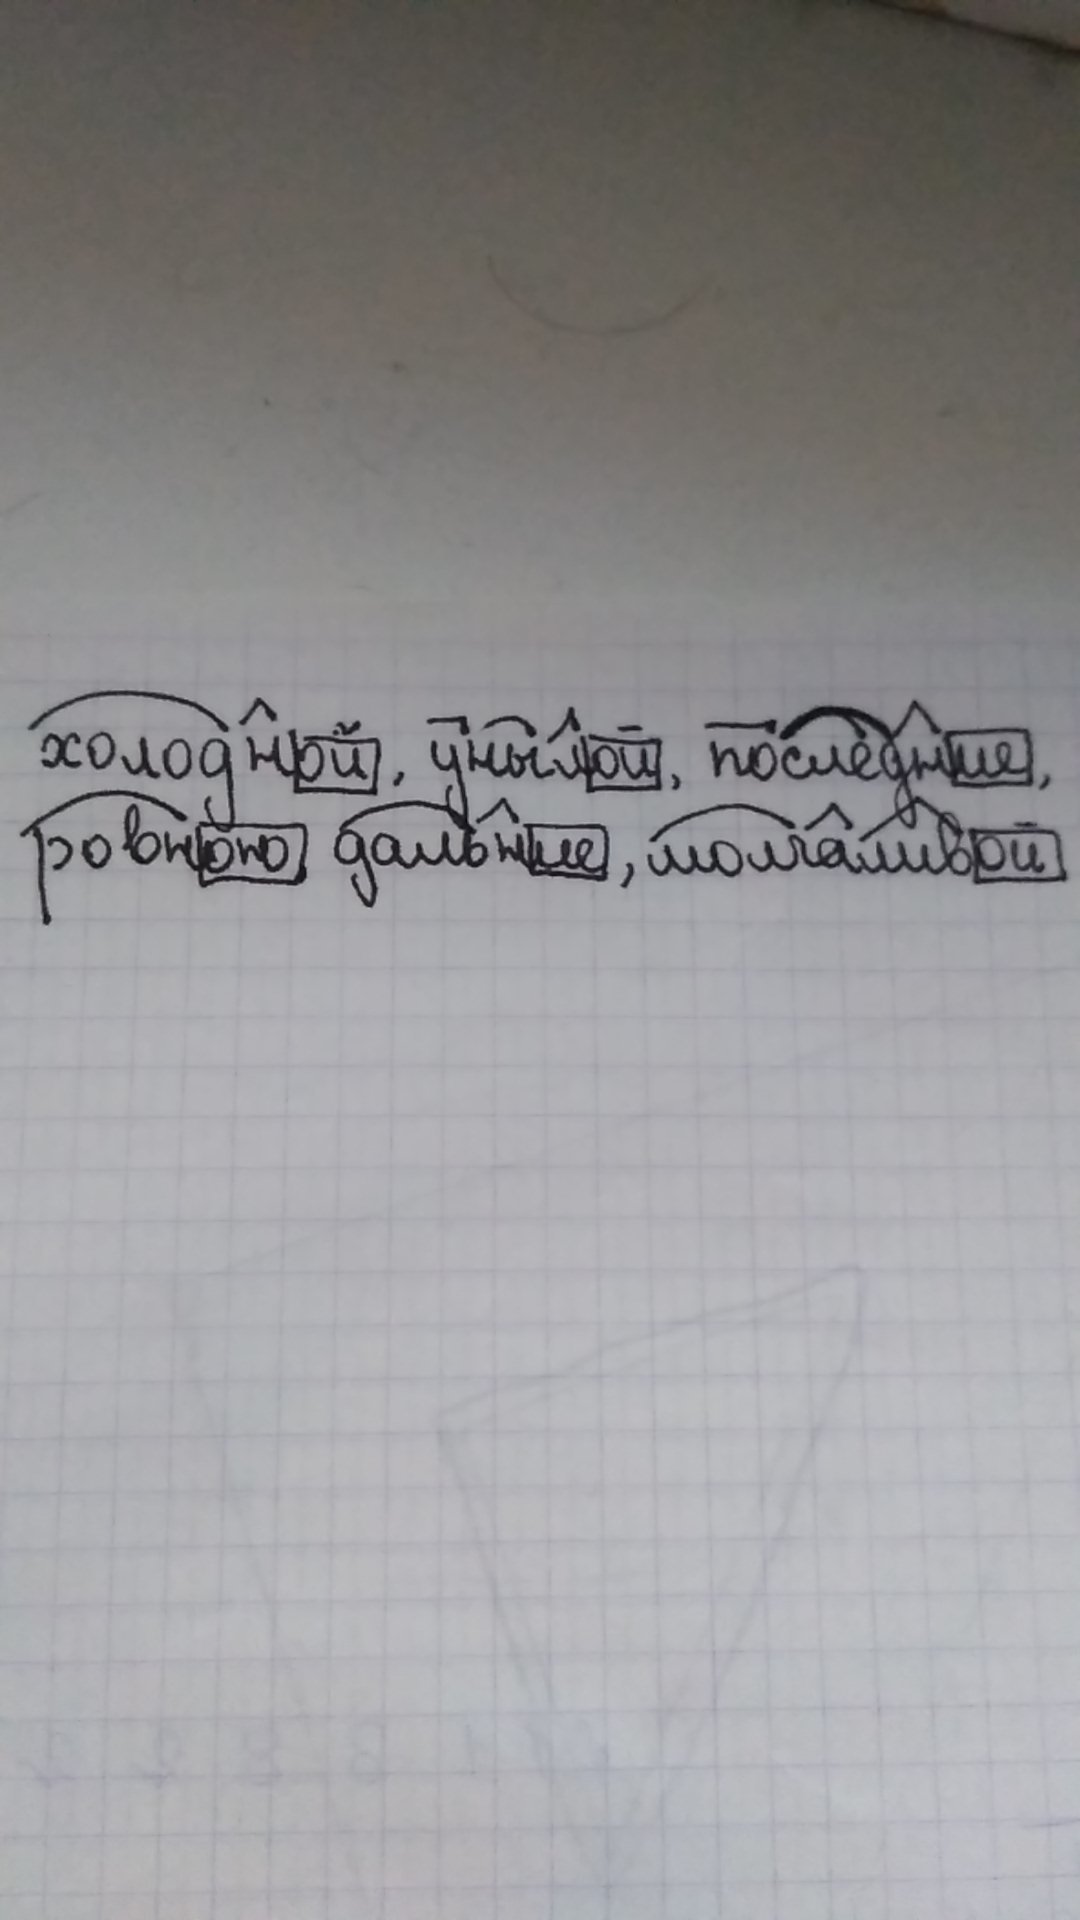 холодной, унылой, последние,
ровного дальние, молчаливой